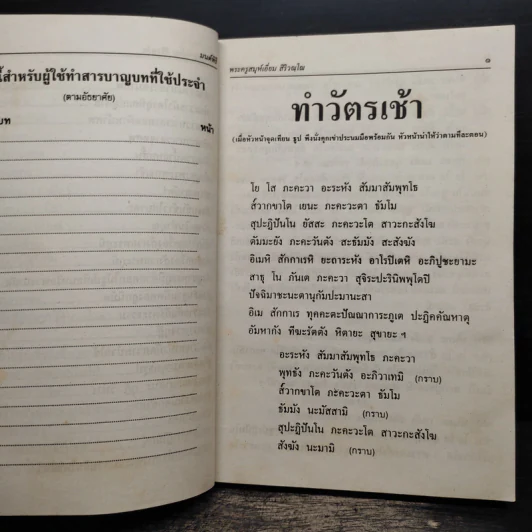 นี้สำหรับผู้ใช้ทำสารบาญบทที่ใช้ประจำ
(ตามอัธยาศัย)
บท หน้า
พระครูสมุห์เอี่ยม สิริวณฺโณ ๑
ทำวัตรเช้า
(เมื่อหัวหน้าจุดเทียน ธูป พึงนั่งคุกเข่าประนมมือพร้อมกัน หัวหน้านำให้ว่าตามทีละตอน)
โย โส ภะคะวา อะระหัง สัมมาสัมพุทโธ
ส๎วากขาโต เยนะ ภะคะวะตา ธัมโม
สุปะฏิปันโน ยัสสะ ภะคะวะโต สาวะกะสังโฆ
ตัมมะยัง ภะคะวันตัง สะธัมมัง สะสังฆัง
อิเมหิ สักกาเรหิ ยะถาระหัง อาโรปิเตหิ อะภิปูชะยามะ
สาธุ โน ภันเต ภะคะวา สุจิระปะรินิพพุโตปิ
ปัจฉิมาชะนะตานุกัมปะมานะสา
อิเม สักกาเร ทุคคะตะปัณณาการะภูเต ปะฏิคคัณหาตุ
อัมหากัง ทีฆะรัตตัง หิตายะ สุขายะ ฯ
อะระหัง สัมมาสัมพุทโธ ภะคะวา
พุทธัง ภะคะวันตัง อะภิวาเทมิ (กราบ)
ส๎วากขาโต ภะคะวะตา ธัมโม
ธัมมัง นะมัสสามิ (กราบ)
สุปะฏิปันโน ภะคะวะโต สาวะกะสังโฆ
สังฆัง นะมามิ (กราบ)